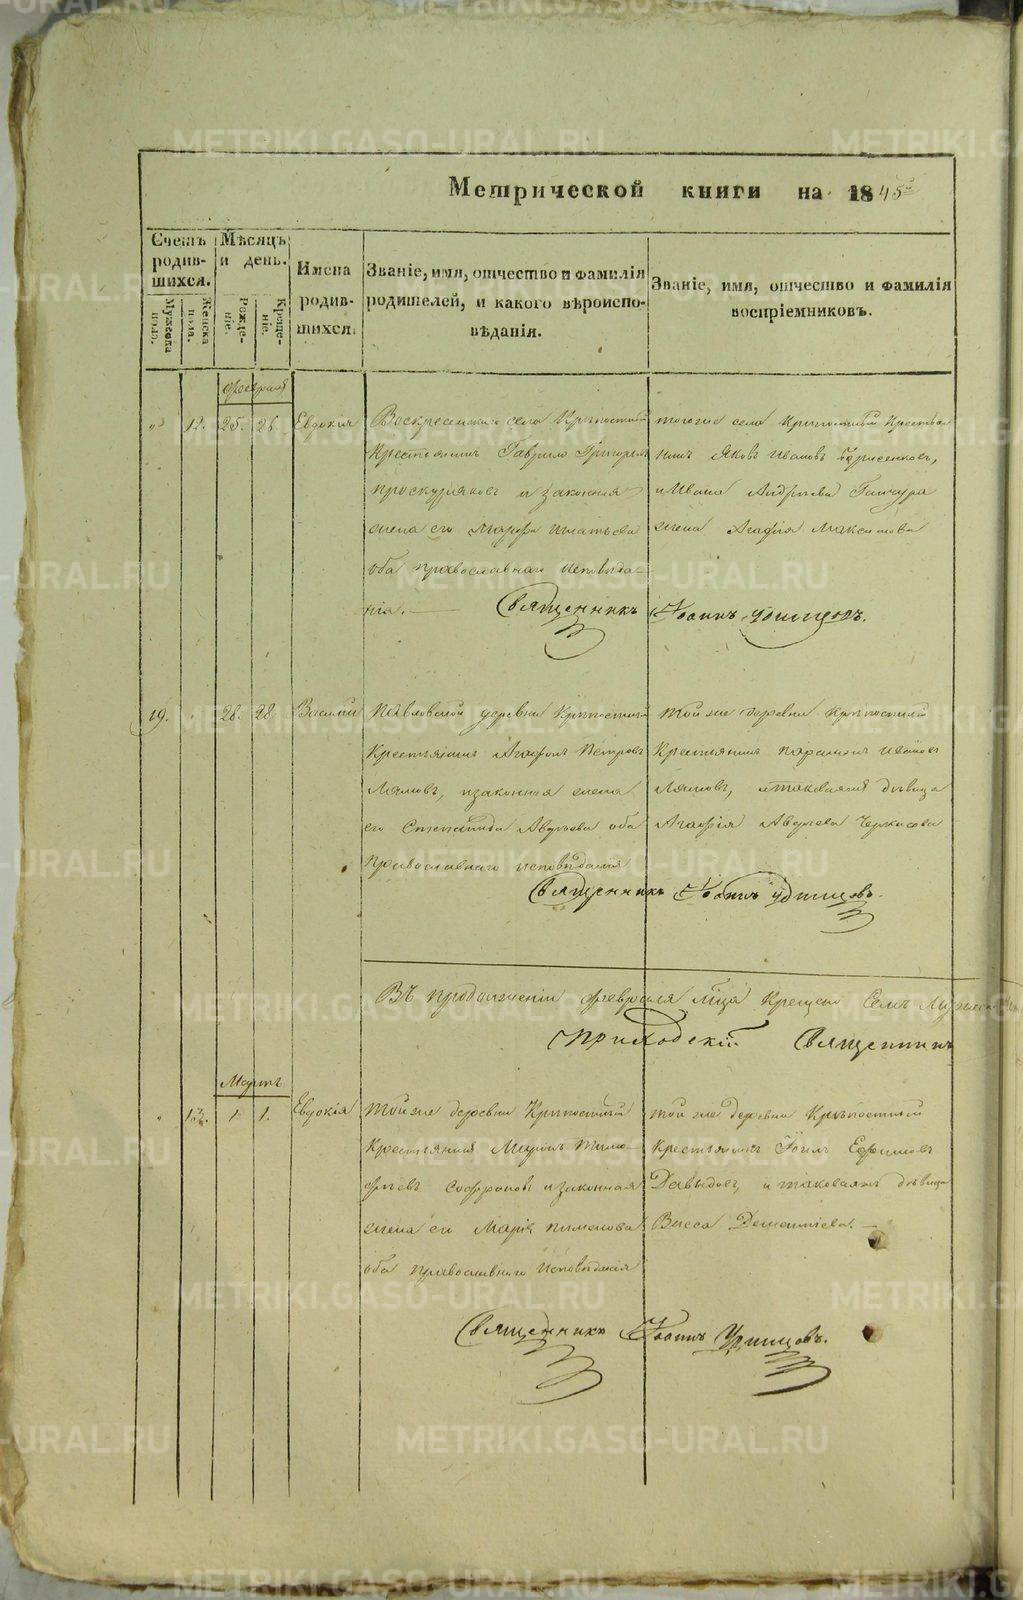 Метрической книги на 1845
Счетъ родив-шихся.
Мужеска полу.
Женска пола.
Мѣсяцъ и день.
Рожде-ніе.
Креще-ніе.
Имена
родив-
шихся.
Званіе, имя, отчество и фамилія
родителей, и какого вѣроиспо-
вѣданія.
Званіе, имя, отчество и фамилія
воспріемниковъ.
февраля
12. 25. 26. Евдокія
Воскресенскаго села Крѣпостный
Крестьянинъ Гаврило Григорьев
Проскуряковъ и законная
жена его Марфа Игнатьева
оба православнаго исповѣда-
нія.
тогоже села Крѣпостный Крестья
нинъ Яковъ Ивановъ Борисенковъ,
и Ивана Андреева Гончура
жена Агафія Максимова
Священникъ Іоаннъ Удинцовъ.
19. 28. 28 Василій
Павловской деревни Крѣпостный
Крестьянинъ Агафонъ Петровъ
Лямовъ, и законная жена
его Степанида Авдеева оба
Православнаго исповѣданія
той же деревни крѣпостный
Крестьянинъ Парамонъ Ивановъ
Лямовъ, и таковаяже дѣвица
Агафія Авдеева Черкасова
Священникъ Іоаннъ Удинцовъ.
Въ продолженіи февраля мца Крещено Семъ
Приходскій Священникъ
Мартъ
1. 1. Евдокія
Той же деревни Крѣпостный
Крестьянинъ Миронъ Тимо
феевъ Софроновъ и законная
жена его Марія Пименова
оба православнаго Исповѣданія
той же деревни Крѣпостный
Крестьянинъ Іоилъ Ефимовъ
Давыдовъ, и таковаяже дѣвица
Васса Дементіева.
Священникъ Іоаннъ Удинцовъ.
METRIKI.GASO-URAL.RU